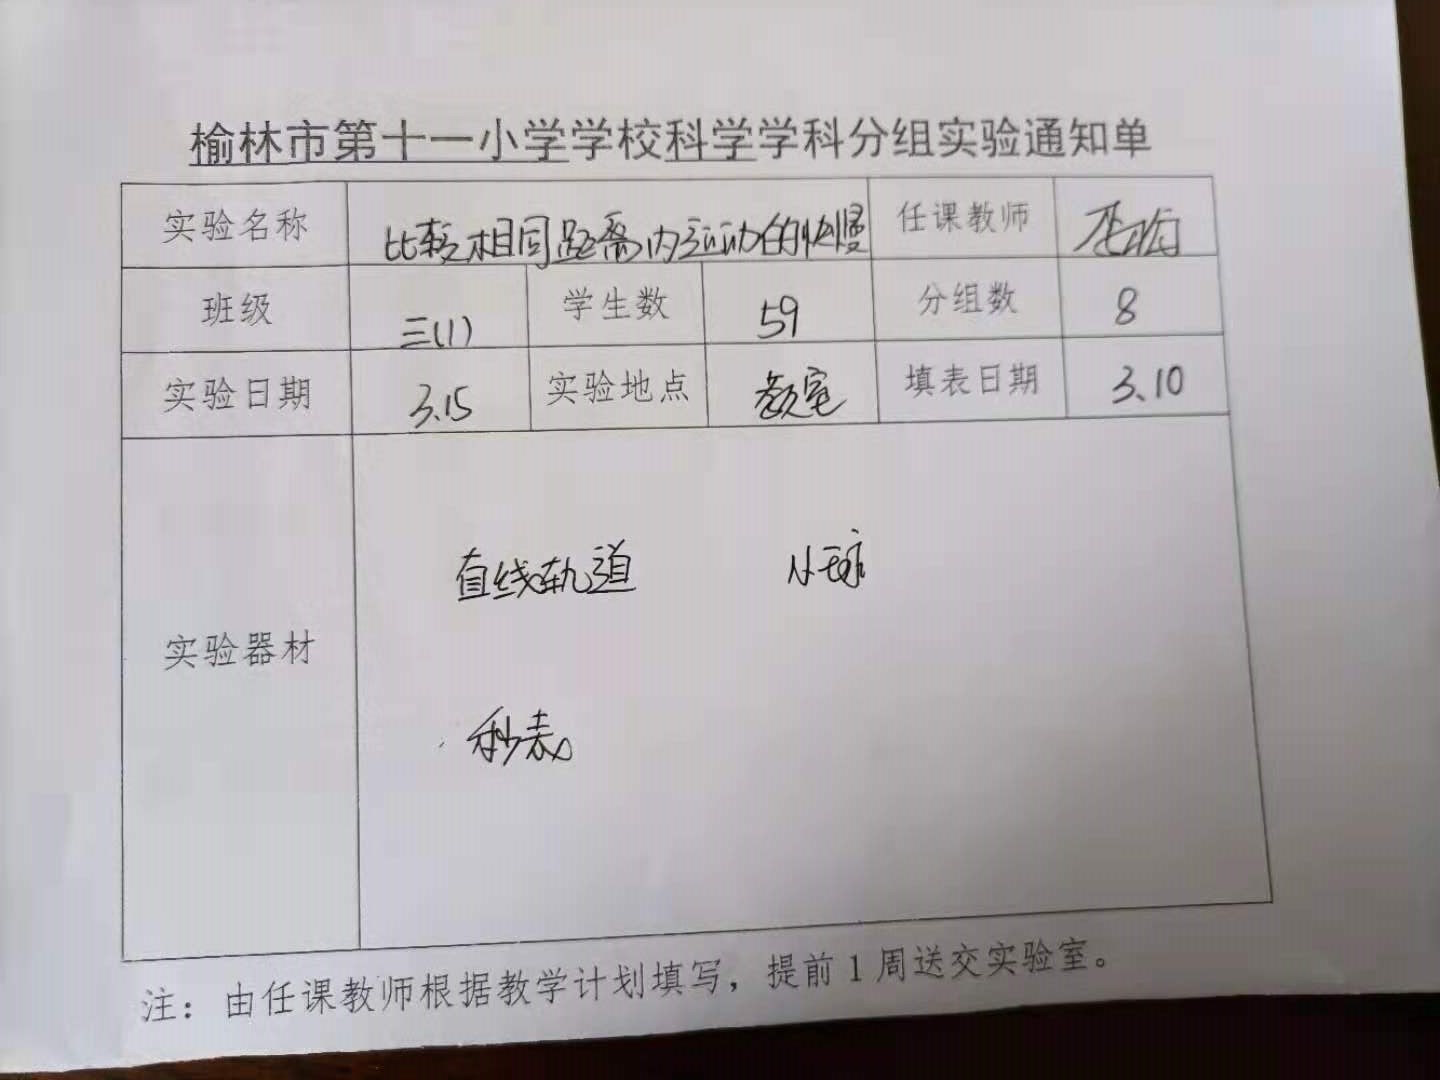 榆林市第十一小学学校科学学科分组实验通知单
实验名称 比较相同距离内运动的快慢 任课教师
班级 三(1) 学生数 59 分组数 8
实验日期 3.15 实验地点 教室 填表日期 3.10
直线轨道 小球
实验器材
秒表
注：由任课教师根据教学计划填写，提前1周送交实验室。